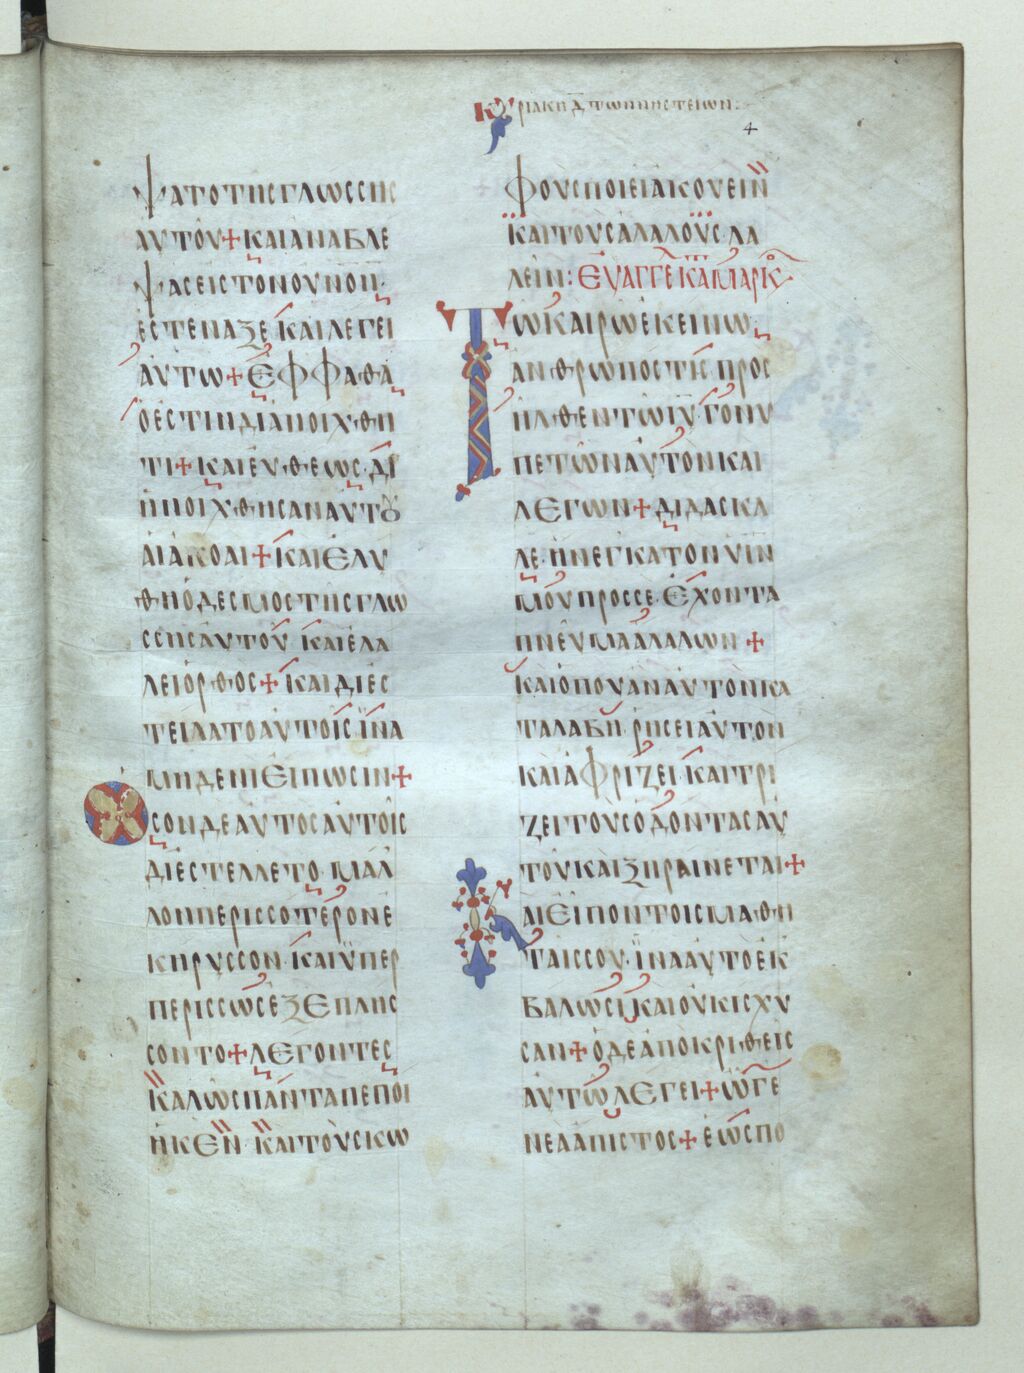 Κυριακη Δ των νηστειων:
4
ψατο της γλωσσης
αυτου + και αναβλε
ψας εις τον ουνον
εστεναξε και λεγει
αυτω + Εφφαθα
ο εστιν διανοιχθη
τι + και ευθεως δι
ηνοιχθησαν αυτου
αι ακοαι + και ελυ
θη ο δεσμος της γλω
σσης αυτου και ελα
λει ορθος + και διες
τειλατο αυτοις ϊνα
μηδενι ειπωσιν +
Οσον δε αυτος αυτοις
διεστελλετο μαλ
λον περισσοτερον ε
κηρυσσον και ϋπερ
περισσως εξεπλης
σοντο + λεγοντες
καλως παντα πεποι
ηκεν και τους κω
φους ποιει ακουειν
και τους αλαλους λα
λειν: Ευαγγε κατ Μαρκ
Τω καιρω εκεινω
ανθρωπος τις προς
ηλθεν τω ιυ γονυ
πετων αυτον και
λεγων + διδασκα
λε ηνεγκα τον υιν
μου προς σε εχοντα
πνευμα αλαλων +
και οπου αν αυτον κα
ταλαβη ρησει αυτον
και αφριζει και τρι
ζει τους οδοντας αυ
του και ξηραινεται +
Και ειπον τοις μαθη
ταις σου ϊνα αυτο εκ
βαλωσι και ουκ ισχυ
σαν + ο δε αποκριθεις
αυτω λεγει + ω γε
νεα απιστος + εως πο